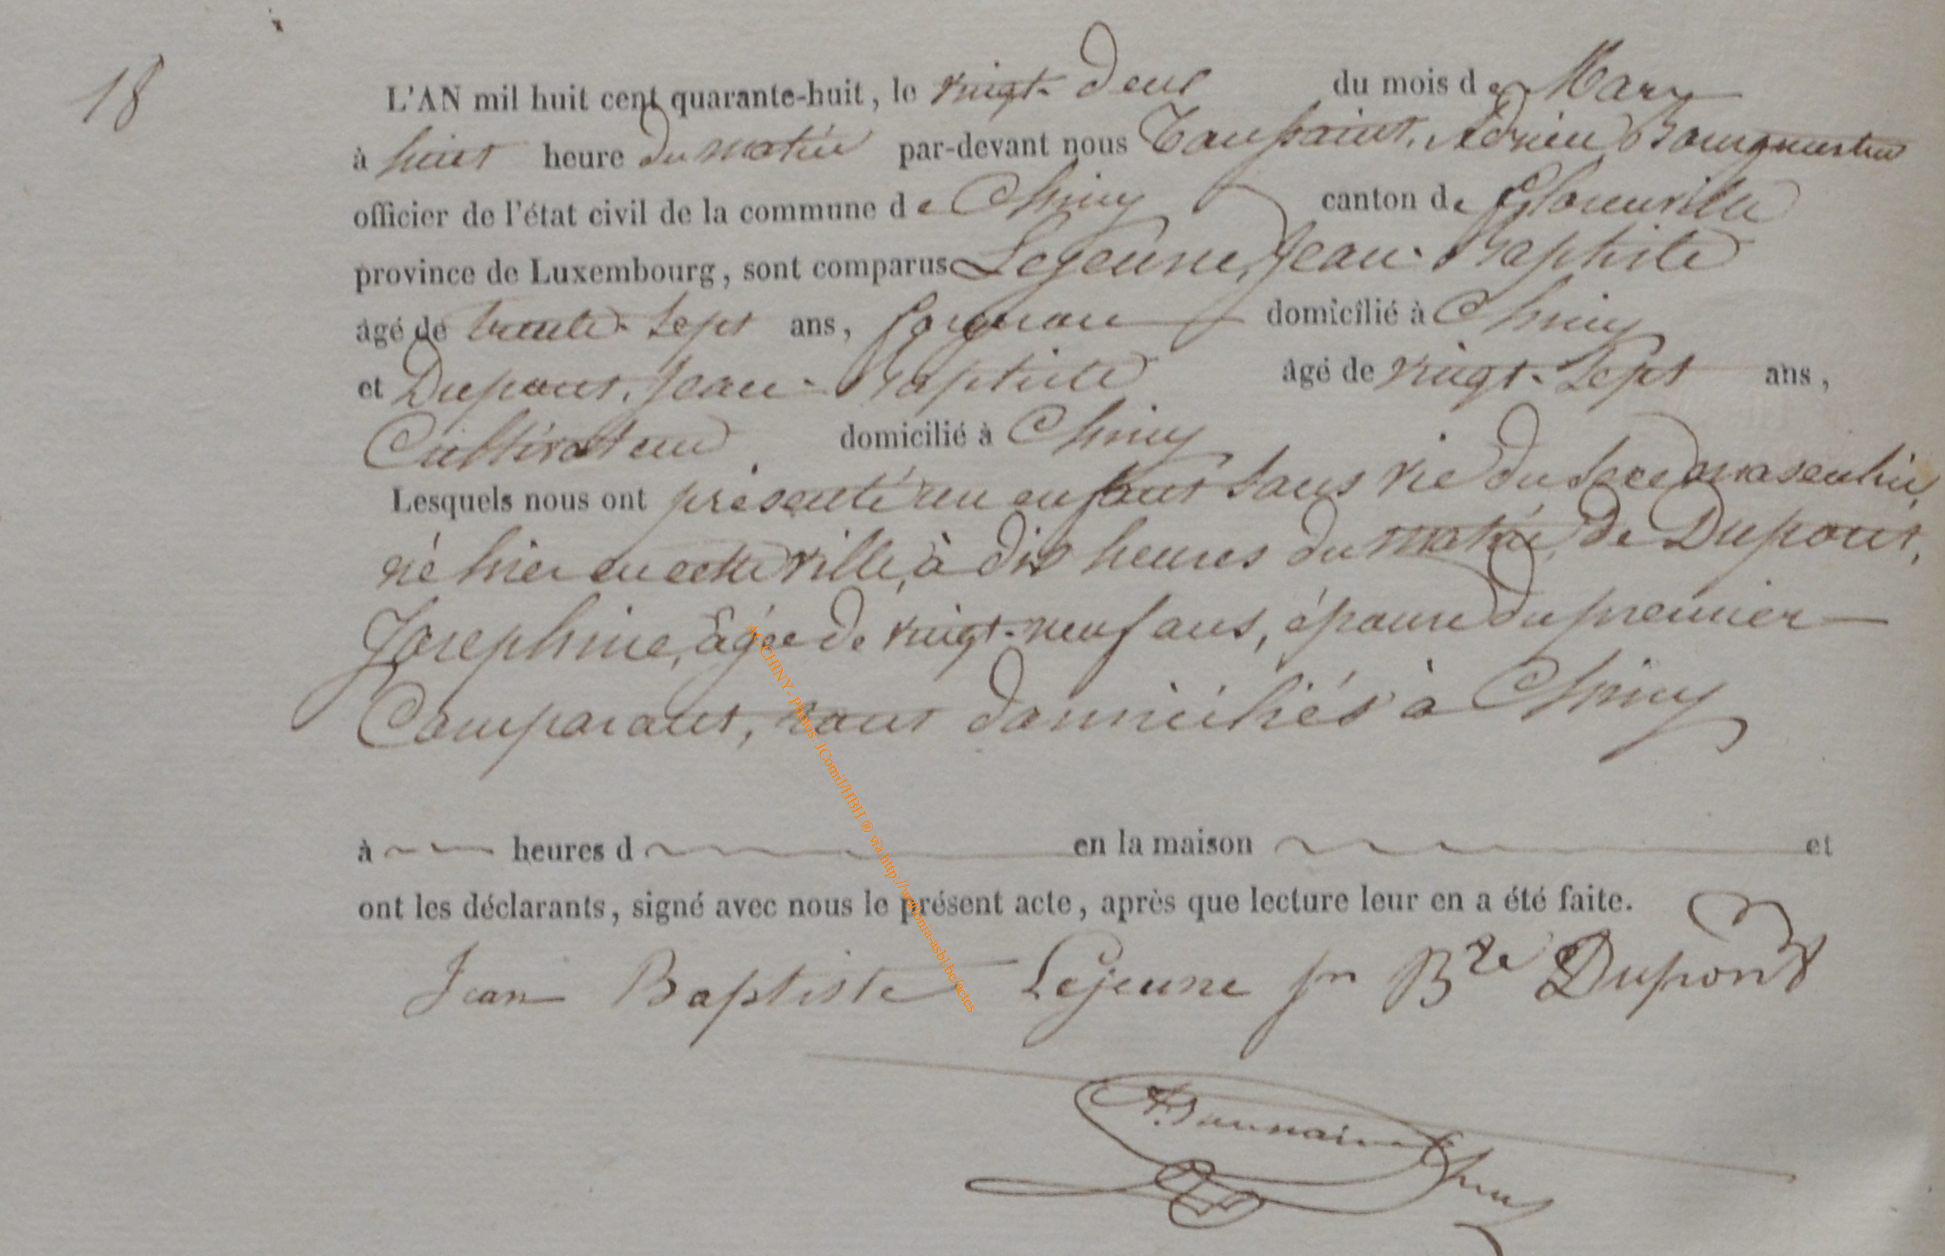 18
L'AN mil huit cent quarante-huit, le vingt-deux du mois de Mars
à huit heure du matin par-devant nous Toussaint, Adrien Bourgmestre
officier de l'état civil de la commune de Chiny canton de Florenville
province de Luxembourg, sont comparus Lejeune, Jean-Baptiste
âgé de trente-sept ans, domicilié à Chiny
et Dupont, Jean-Baptiste âgé de vingt-sept ans,
Cultivateur domicilié à Chiny
Lesquels nous ont présenté un enfant sans vie du sexe masculin,
né hier en cette ville, à dix heures du matin, de Dupont,
Josephine, âgée de vingt-neuf ans, épouse du premier
Comparant, tous domiciliés à Chiny
à heures d en la maison et
ont les déclarants, signé avec nous le présent acte, après que lecture leur en a été faite.
Jean Baptiste Lejeune Jn Bte Dupont
A. Toussaint